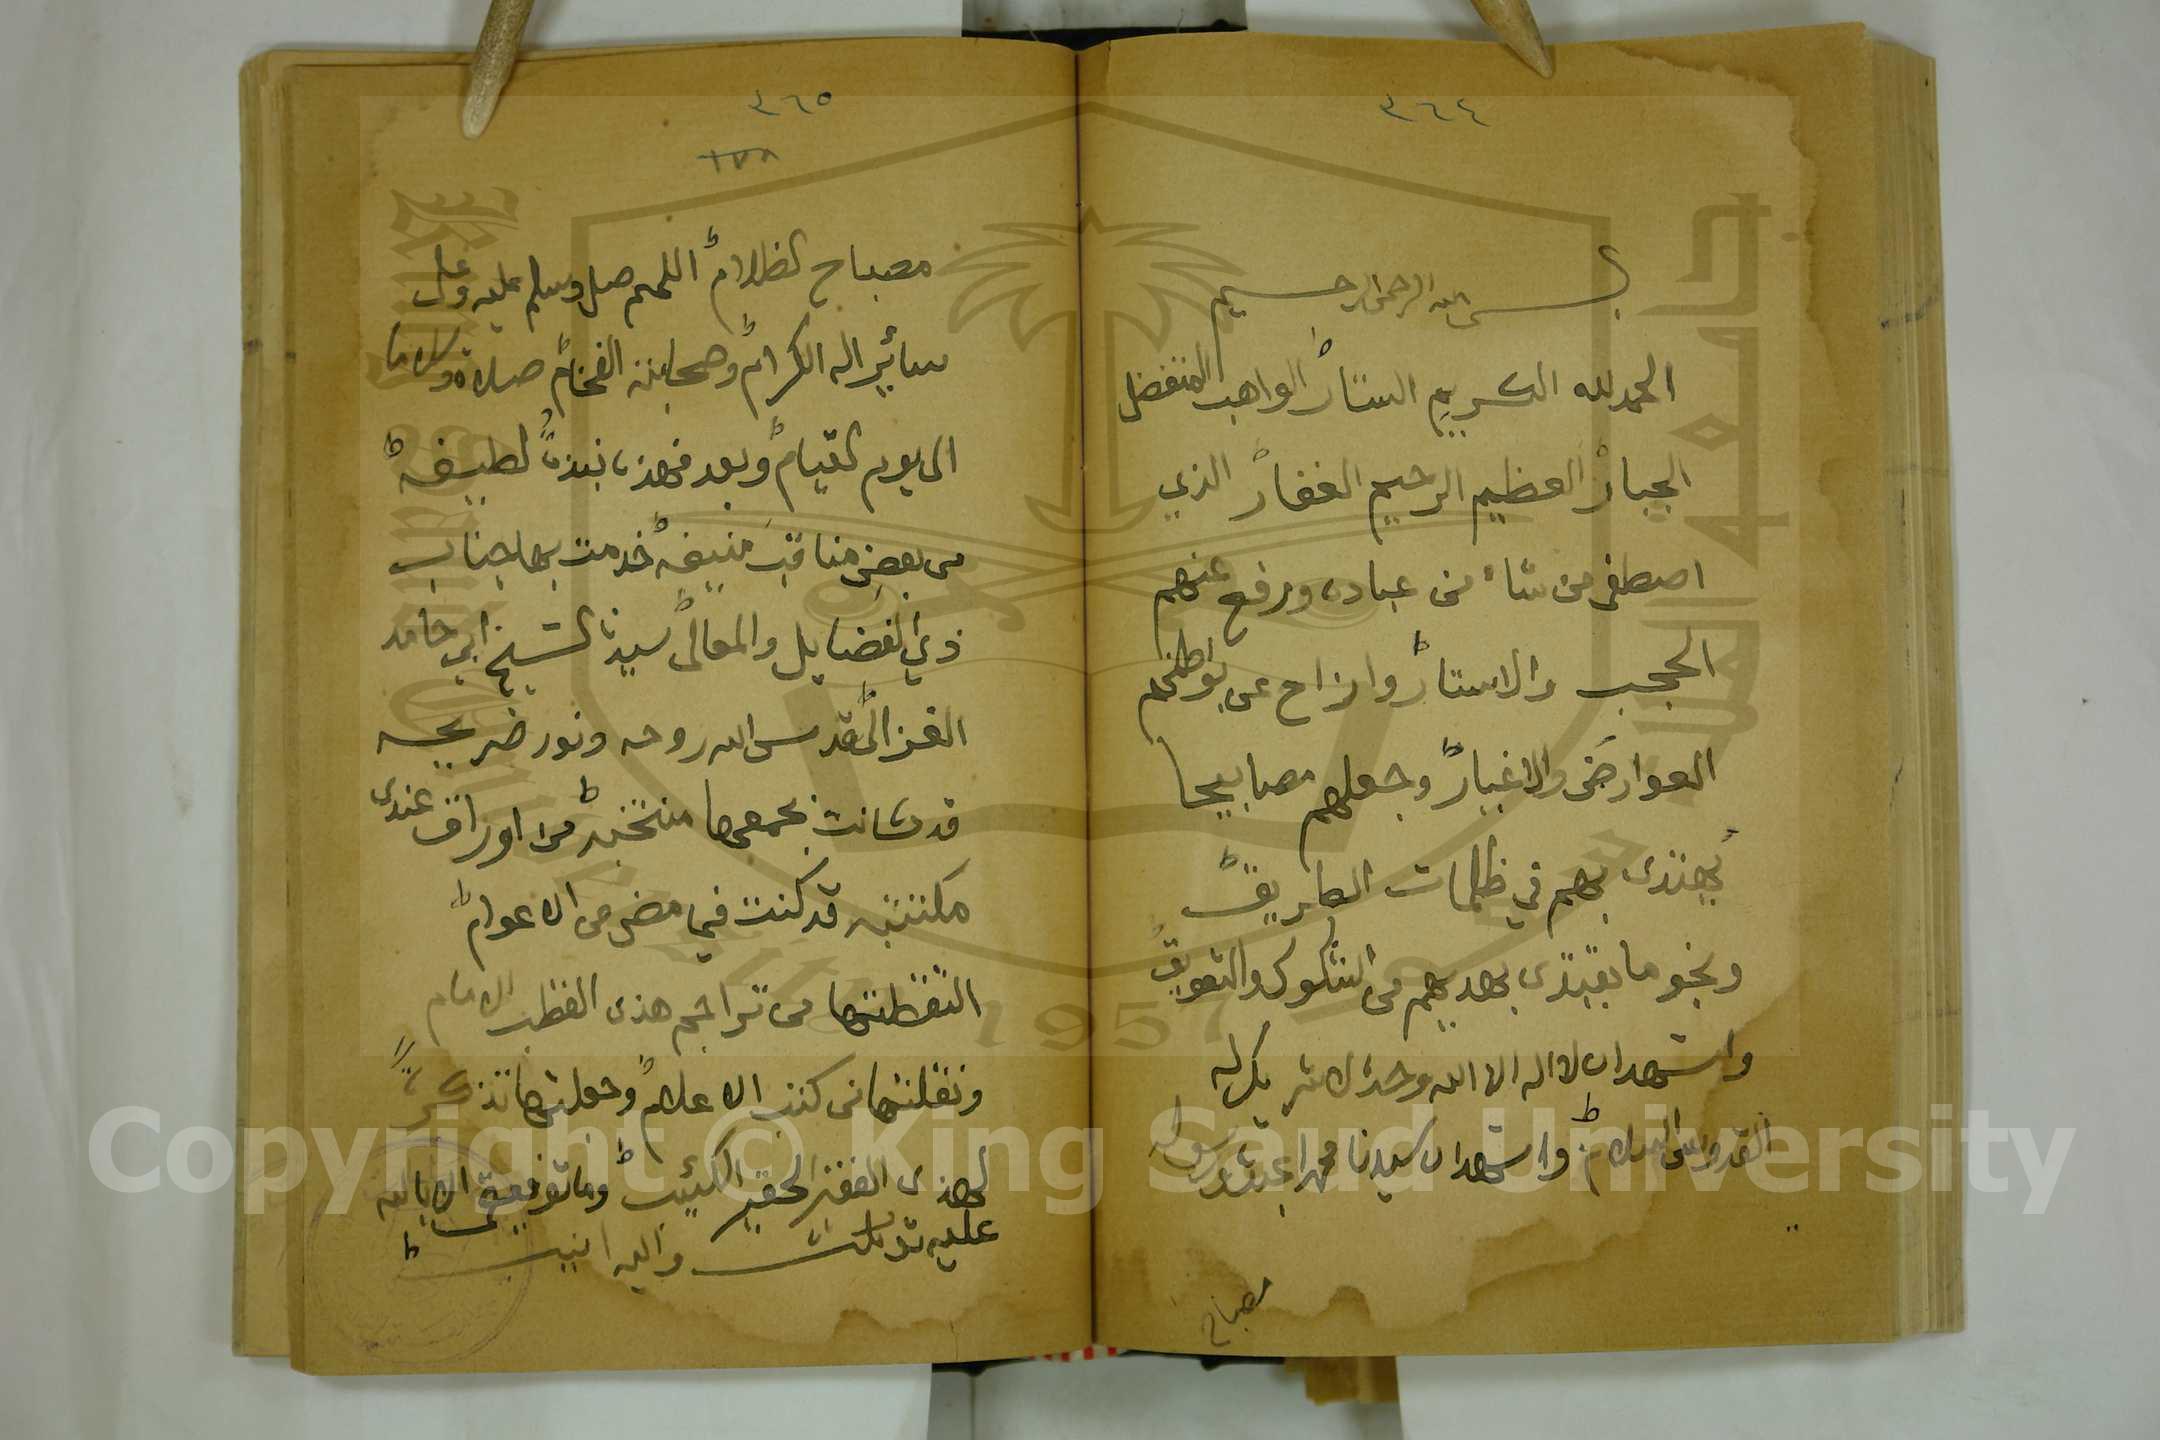 ٣٦٤
بسم الله الرحمن الرحيم
الحمد لله الكريم الستار الواهب المتفضل
الجبار العظيم الرحيم الغفار الذي
اصطفى من شاء من عباده ورفع عنهم
الحجب والاستار وازاح عن بواطنهم
العوارض والاغيار وجعلهم مصابيحا
يهتدى بهم في ظلمات الطريق
ونجوما يقتدى بهديهم من الشكوك والتعويق
واشهد ان لا اله الا الله وحده لا شريك له
القدوس السلام واشهد ان سيدنا محمدا عبده ورسوله
مصباح
٣٦٥
١٧٨
مصباح الظلام اللهم صل وسلم عليه وعلى
سائر اله الكرام وصحابته الفخام صلاة وسلاما
الى يوم القيام وبعد فهذه نبذة لطيفة
من بعض مناقب منيفة خدمت بها جناب
ذي الفضايل والمعالي سيدنا الشيخ ابي حامد
الغزالي قدس الله روحه ونور ضريحه
قد كانت بجمعها منتخبة من اوراق عندى
مكتتبه قد كنت فيما مضى من الاعوام
التقطتها من تراجم هذى القطب الامام
ونقلتها من كتب الاعلام وجعلتها تذكرة
لهذى الفقير الحقير الكئيب وما توفيقي الا بالله
عليه توكلت واليه انيب
جامعة الملك سعود
King Saud University
1957
Copyright © King Saud University